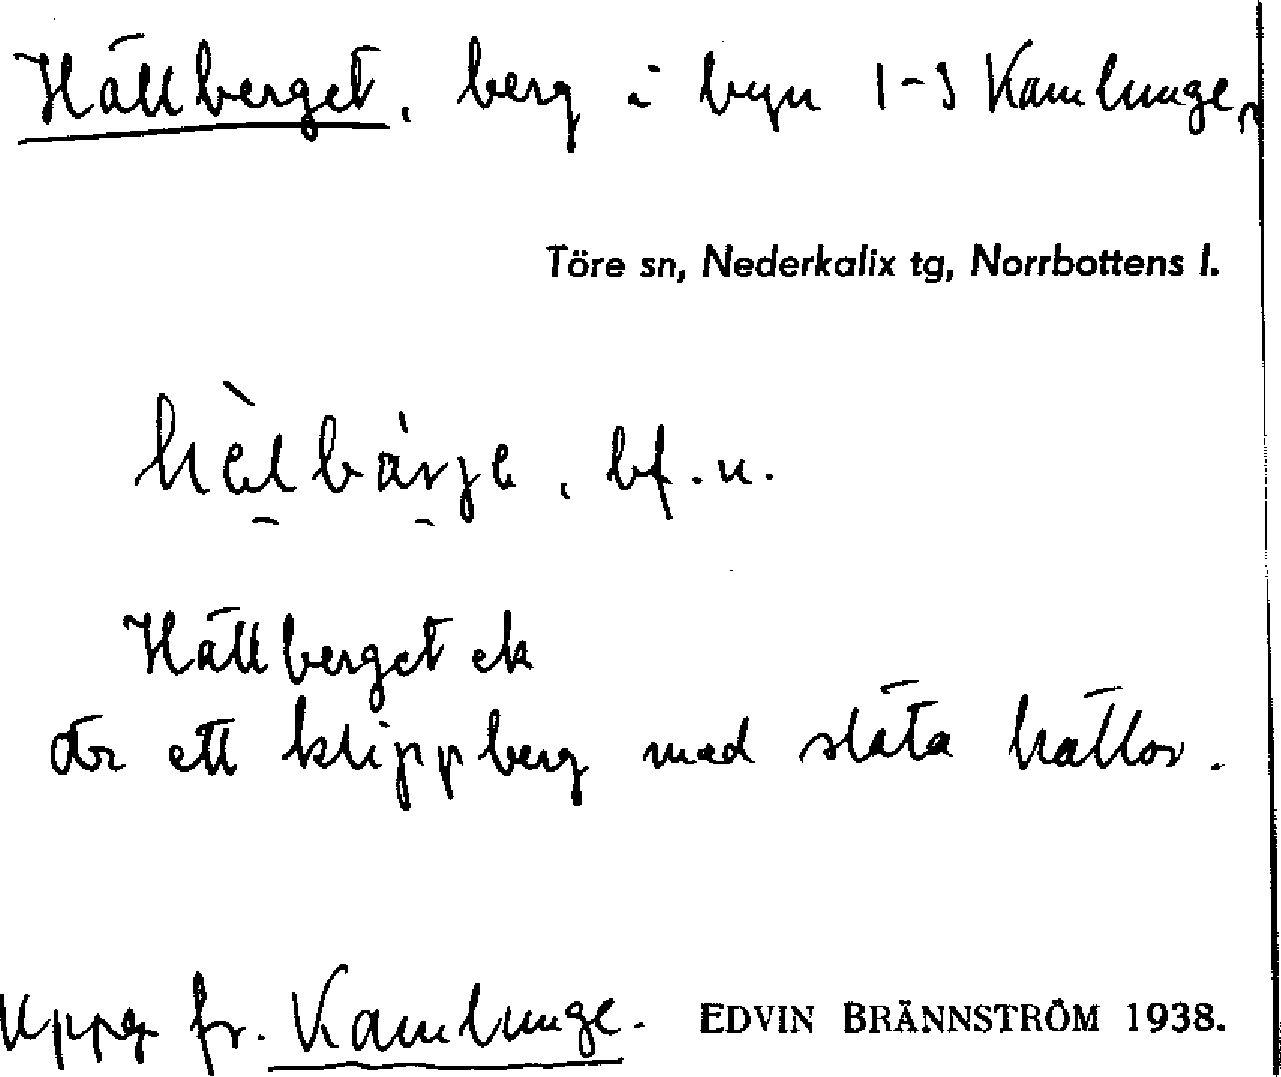 Hällberget, berg i byn 1-3 Kamlunge,
Töre sn, Nederkalix tg, Norrbottens l.
bf. n.
Hällberget ek
är ett klippberg med släta hällar.
Uppg fr. Kamlunge.
EDVIN BRÄNNSTRÖM 1938.